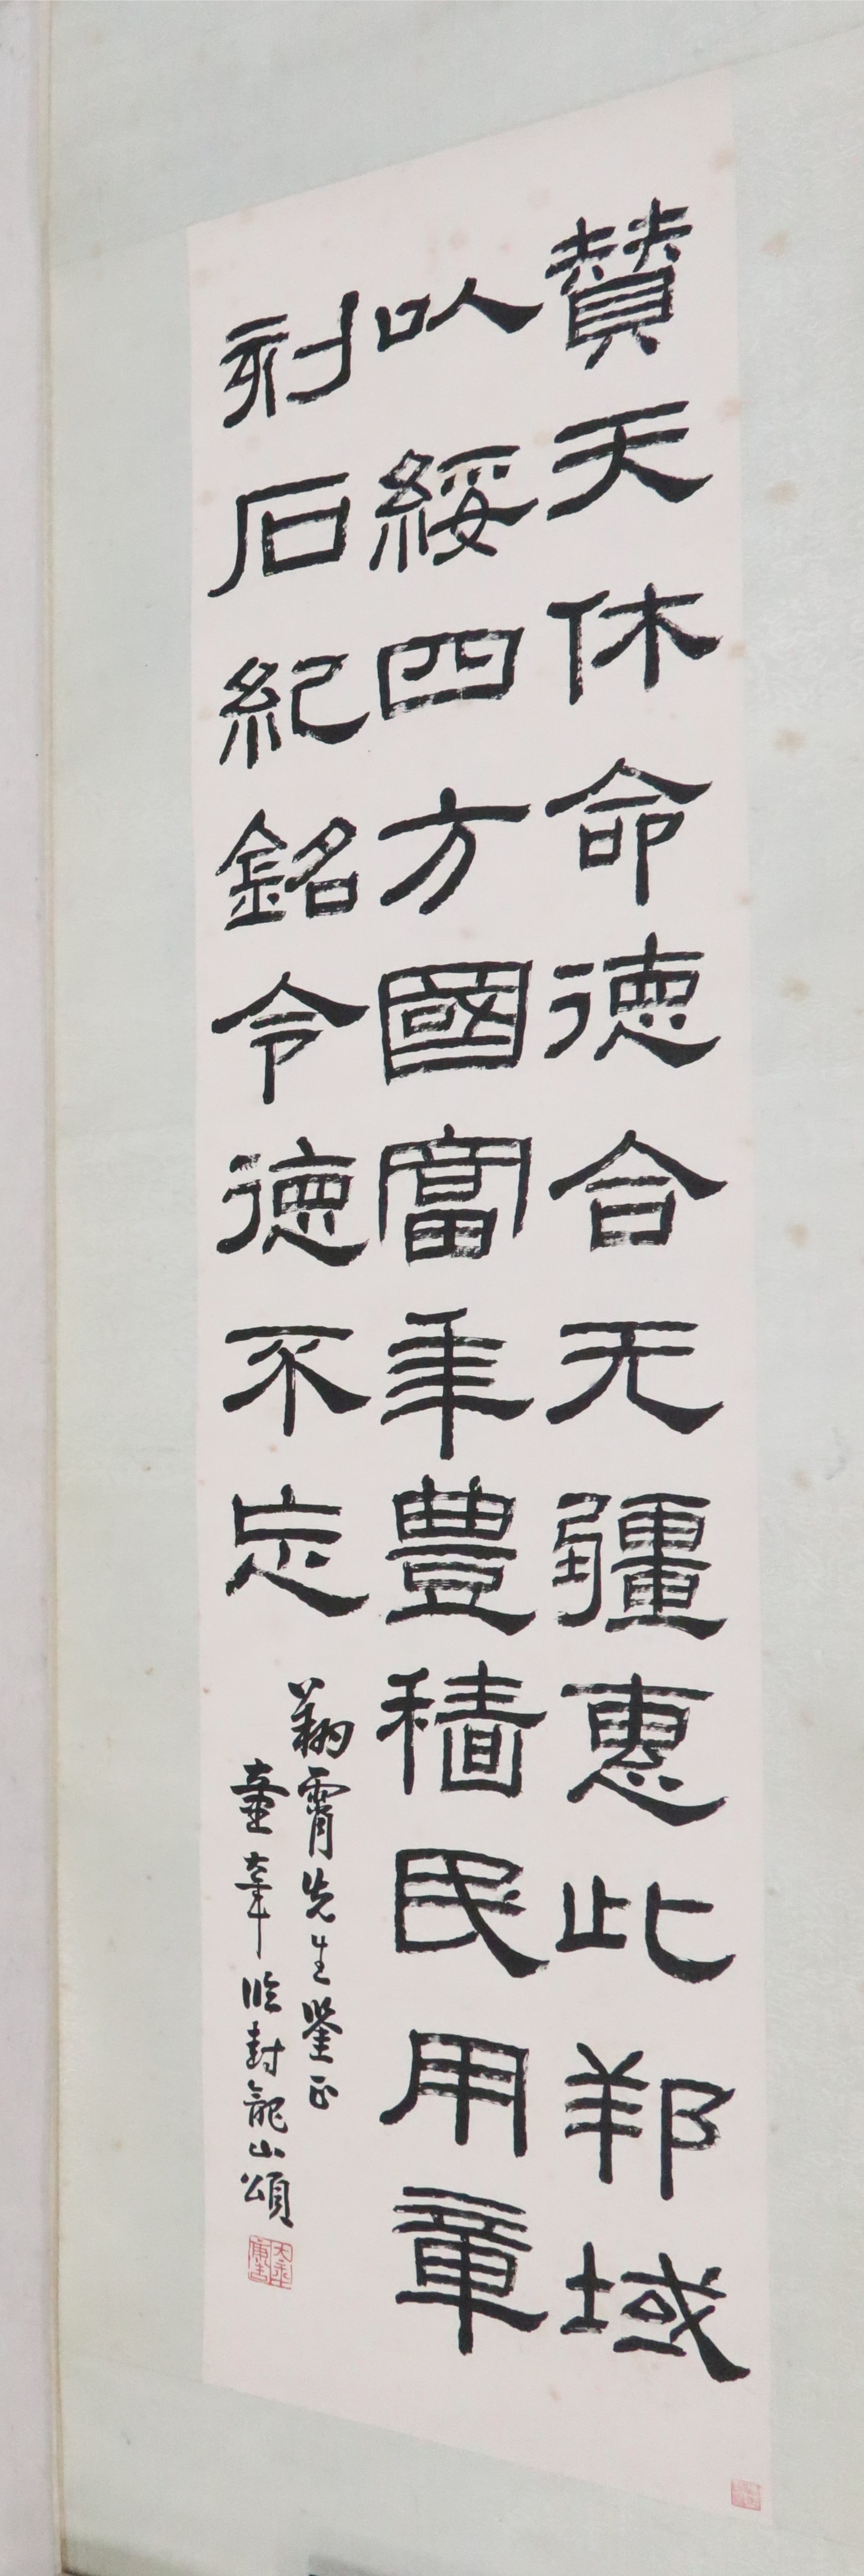 贊天休命德合无疆惠此邦域
以綏四方國富年豊穡民用章
刻石紀銘令德不忘
翰霄先生鑒正
臨封龍山頌